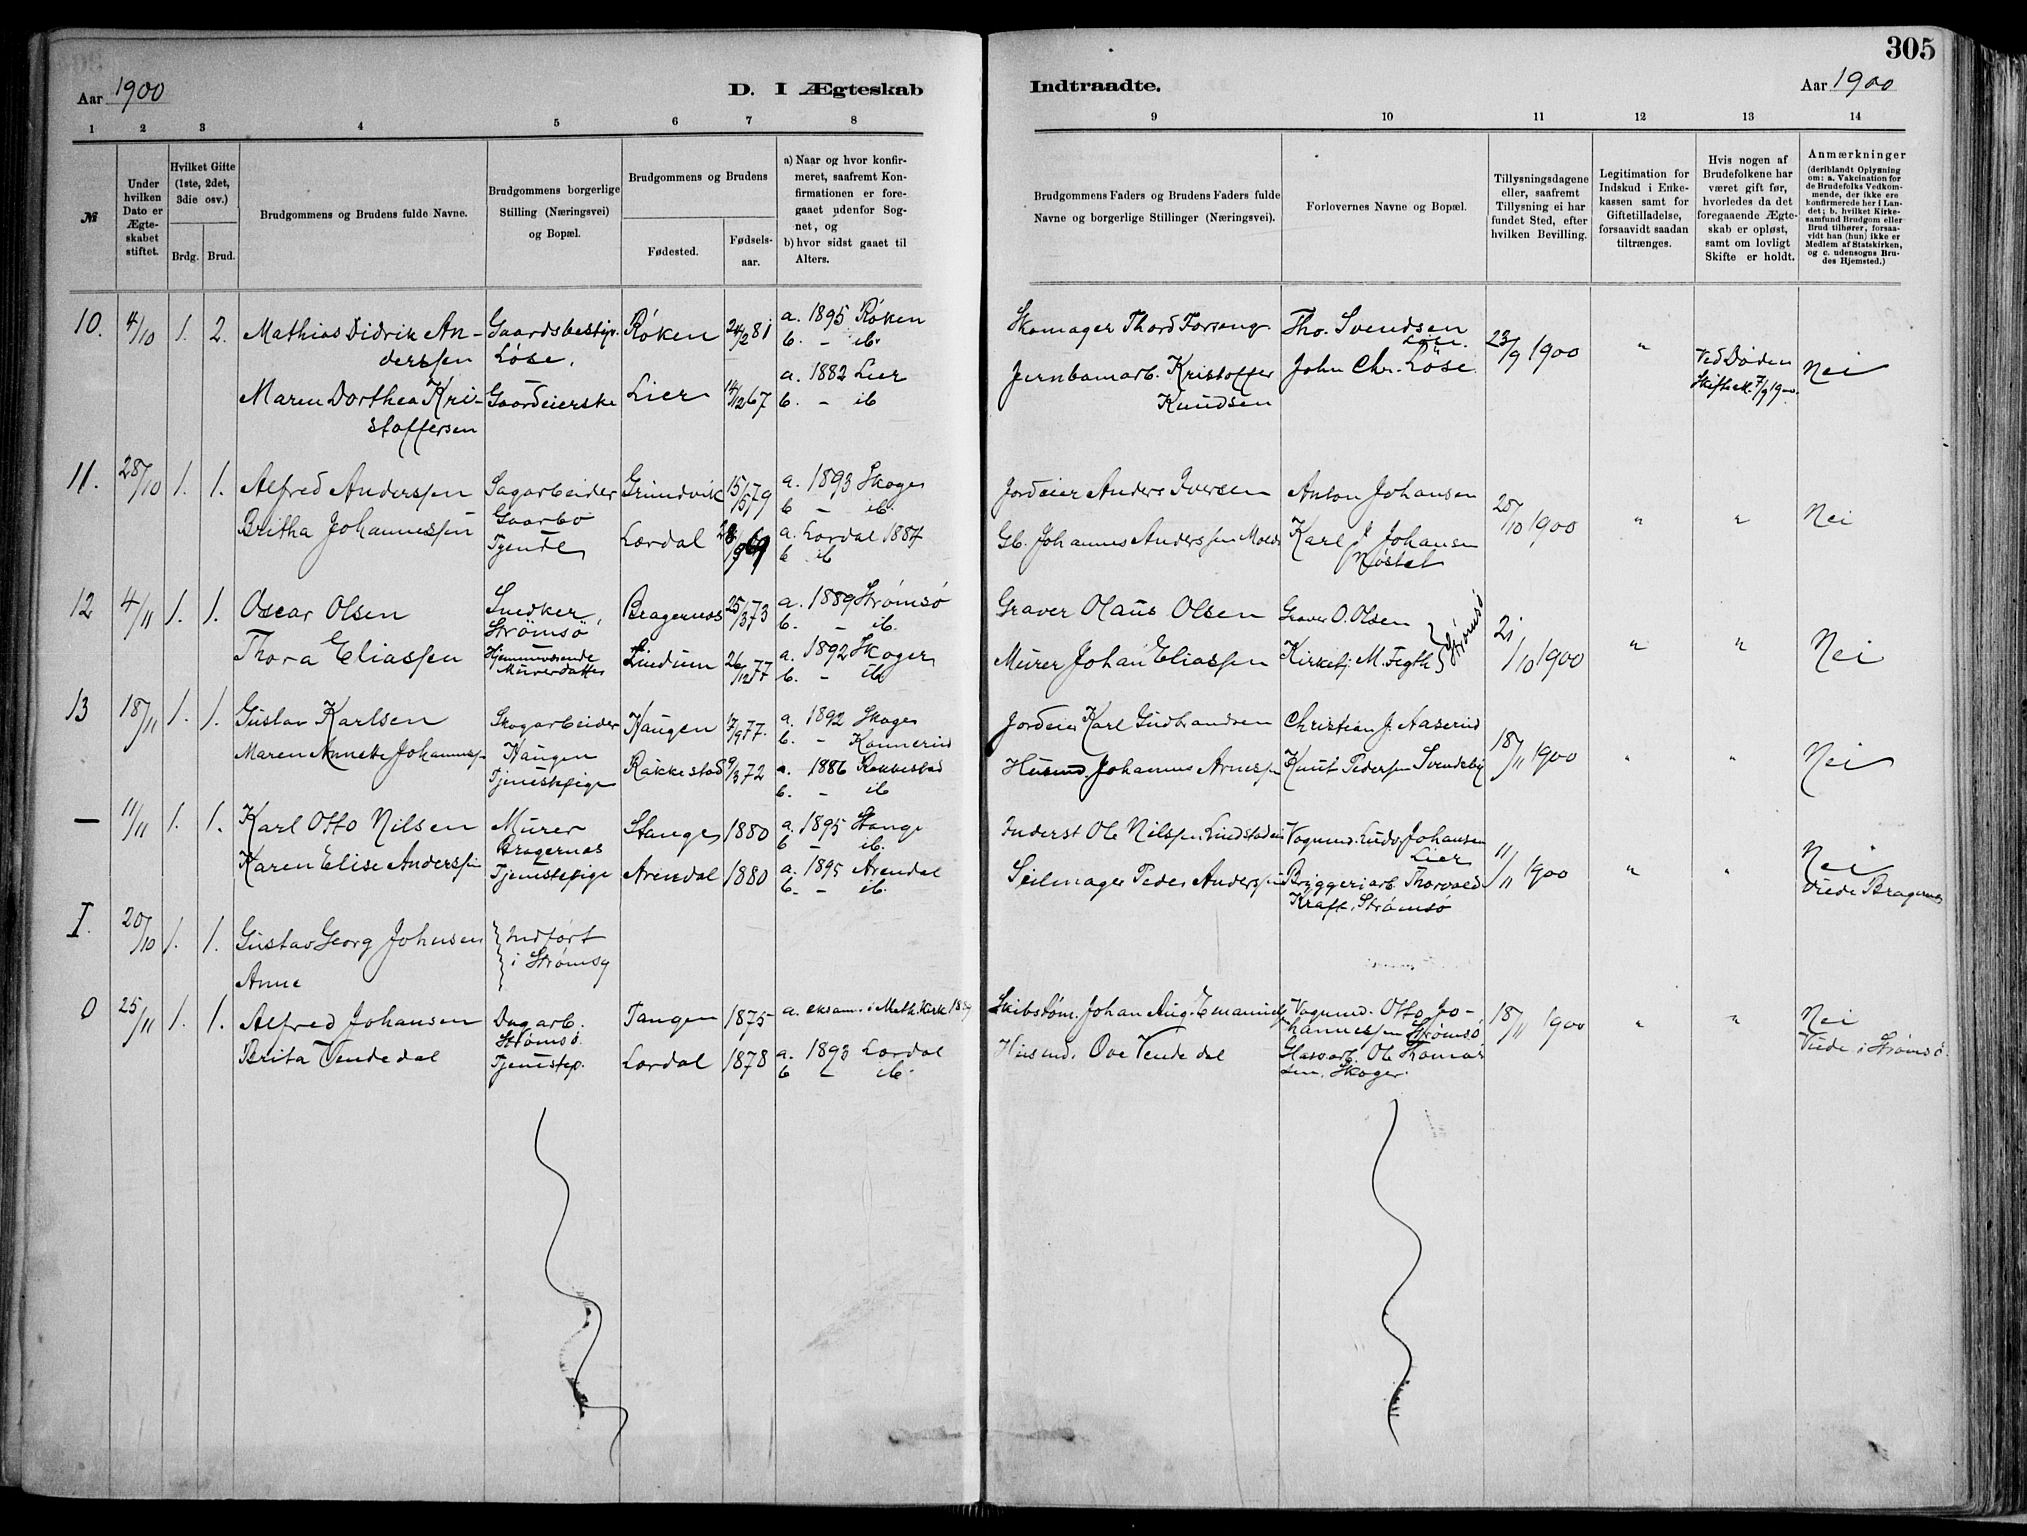 305
Aar 1900
D. I Ægteskab
Indtraadte.
Aar 1900
1 2 3 4 5 6 7 8 9 10 11 12 13 14
№
Under hvilken Dato er Ægteskabet stiftet.
Hvilket Gifte (1ste, 2det, 3die osv.)
Brdg. Brud.
Brudgommens og Brudens fulde Navne.
Brudgommens borgerlige Stilling (Næringsvei) og Bopæl.
Brudgommens og Brudens
Fødested.
Fødselsaar.
a) Naar og hvor konfirmeret, saafremt Konfirmationen er foregaaet udenfor Sognet, og
b) hvor sidst gaaet til Alters.
Brudgommens Faders og Brudens Faders fulde Navne og borgerlige Stillinger (Næringsvei).
Forlovernes Navne og Bopæl.
Tillysningsdagene eller, saafremt Tillysning ei har fundet Sted, efter hvilken Bevilling.
Legitimation for Indskud i Enkekassen samt for Giftetilladelse, forsaavidt saadan tiltrænges.
Hvis nogen af Brudefolkene har været gift før, hvorledes da det foregaaende Ægteskab er opløst, samt om lovligt Skifte er holdt.
Anmærkninger
(deriblandt Oplysning om: a. Vakcination for de Brudefolks Vedkommende, der ikke ere konfirmerede her i Landet; b. hvilket Kirkesamfund Brudgom eller Brud tilhører, forsaavidt han (hun) ikke er Medlem af Statskirken, og c. udensogns Brudes Hjemsted.)
10. 4/10 1. 2. Mathias Didrik An- Gaardsbestyr. Røken 24/2 81 a. 1895 Røken Skomager Thord Tho. Svendsen 23/9 1900 " Ved Døden Nei
derssen Løse. b. – ib.
Maren Dorthea Kri- Gaardeierske Lier 14/12 67 a. 1882 Lier Jernbanearb. Kristoffer John Chr. Løse Skifte 7/9 1900.
stoffersen b. – ib Knudsen
11. 28/10 1. 1. Alfred Anderssen Sagarbeider Grundvik 15/5 79 a. 1893 Skoger Jordeier Anders Iversen Anton Johansen 20/10 1900 " " Nei
Gaarbo b – ib.
Britha Johannessen Tjende Lærdal 69 a. Lærdal 1884 Gb. Johannes Anderssen Karl J Johansen
b ib Nøsted
12 4/11 1. 1. Oscar Olsen Snedker, Bragernæs 25/3 73 a. 1889 Strømsø Graver Olaus Olsen Graver O. Olsen Strømsø 21/10 1900 " " Nei
Strømsø b. – ib.
Thora Eliassen Hjemmeværende Lindum 26/12 77 a. 1892 Skoger Murer Johan Eliassen Kirkesj. M. Fegth
Murerdatter b. – ib
13 18/11 1. 1. Gustav Karlsen Skogarbeider Haugen 17/9 77. a. 1892 Skoger Jordeier Karl Gudbrandsen Christian J. Aaserud 18/11 1900 " " Nei
Haugen b. – Konnerud
Maren Annette Johanness. Tjenestepige Rakkestad 9/3 72 a. 1886 Rakkestad Husmd. Johannes Arnessen Knut Pedersen Svendsby
b. – ib
— 11/11 1. 1. Karl Otto Nilsen Murer Stange 1880 a. 1895 Stange Inderst Ole Nilssen Vognmd. Ludv Johansen 11/11 1900 " " Nei
Bragernæs b – ib. Lier
Karen Elise Anderssen Tjenestepige Arendal 1880 a. 1895 Arendal Seilmager Peder Anderssen Bryggeriarb. Thorvald Viede Bragernæs
b. – ib. Kraft, Strømsø
I. 20/10 1. 1. Gustav Georg Johnsen Indført
i Strømsø
Anne
0 25/11 1. 1. Alfred Johansen Dagarb. Tangen 1875 a. eksam. i Meth. Kirk Skibstøm. Johan Aug. Vognmd. Otto Jo- 18/11 1900 " " Nei
Strømsø. hannessen Strømsø Viede i Strømsø.
Brita Vendedal Tjenestep. Lærdal 1878 a. 1893 Lærdal Husmd. Ove Vendedal Glasarb. Ole Thomas
b – ib. sen. Skoger.